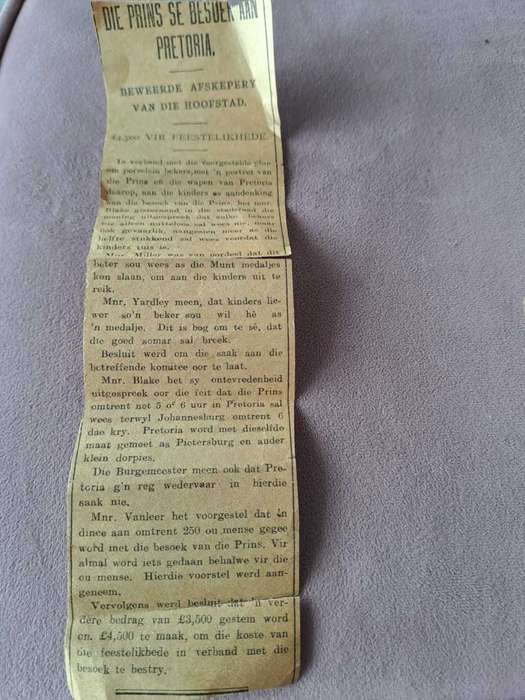 DIE PRINS SE BESOEK AAN
PRETORIA.
BEWEERDE AFSKEPERY
VAN DIE HOOFSTAD.
£4,500 VIR FEESTELIKHEDE.
In verband met die voorgestelde plan
om porselein bekers, met 'n portret van
die Prins en die wapen van Pretoria
daarop, aan die kinders as aandenking
van die besoek van die Prins, het mnr.
Blake gisteraand in die stadsraad die
mening uitgespreek dat sulke bekers
nie alleen nutteloos sal wees nie, maar
ook gevaarlik, aangesien meer as die
helfte stukkend sal wees voordat die
kinders tuis is.
Mnr. Miller was van oordeel dat dit
beter sou wees as die Munt medaljes
kon slaan, om aan die kinders uit te
reik.
Mnr. Yardley meen, dat kinders lie-
wer so'n beker sou wil hê as
'n medalje. Dit is bog om te sê, dat
die goed somar sal breek.
Besluit werd om die saak aan die
betreffende komitee oor te laat.
Mnr. Blake het sy ontevredenheid
uitgespreek oor die feit dat die Prins
omtrent net 5 of 6 uur in Pretoria sal
wees terwyl Johannesburg omtrent 6
dae kry. Pretoria word met dieselfde
maat gemeet as Pietersburg en ander
klein dorpies.
Die Burgemeester meen ook dat Pre-
toria g'n reg wedervaar in hierdie
saak nie.
Mnr. Vanleer het voorgestel dat 'n
dinee aan omtrent 250 ou mense gegee
word met die besoek van die Prins. Vir
almal word iets gedaan behalwe vir die
ou mense. Hierdie voorstel werd aan-
geneem.
Vervolgens werd besluit dat 'n ver-
dere bedrag van £3,500 gestem word
om £4,500 te maak, om die koste van
die feestelikhede in verband met die
besoek te bestry.